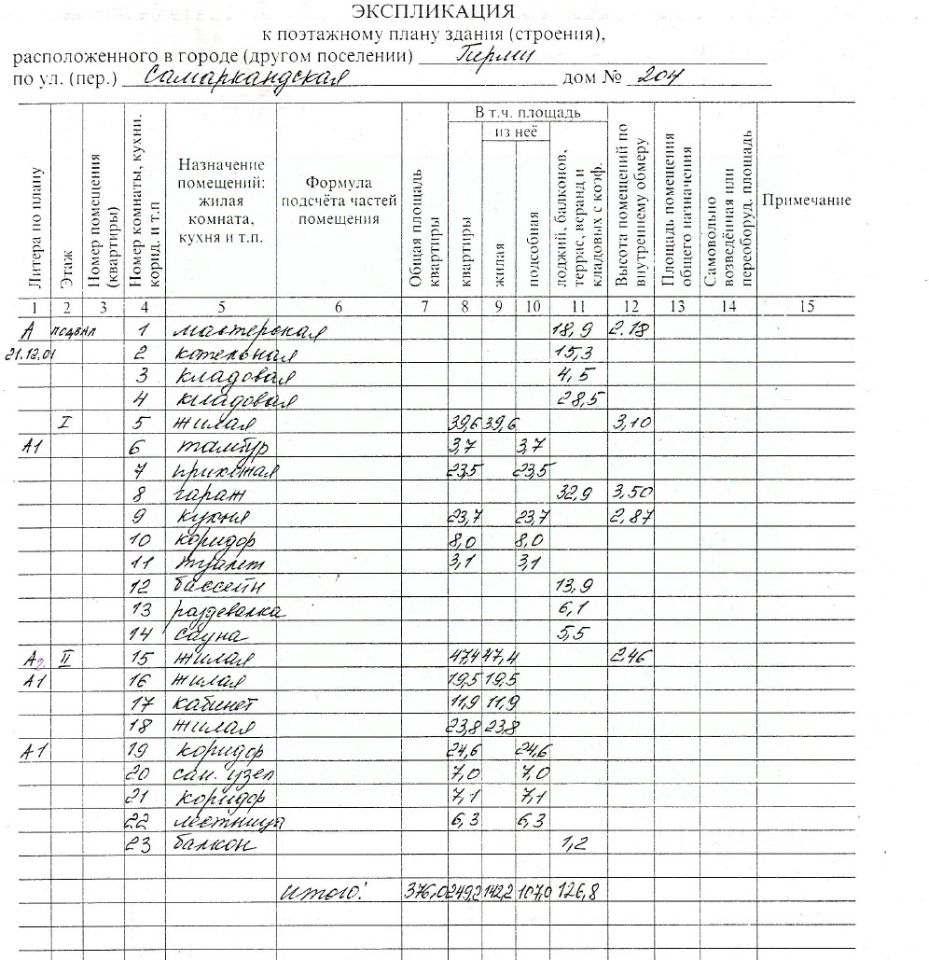 ЭКСПЛИКАЦИЯ
к поэтажному плану здания (строения),
расположенного в городе (другом поселении) Перми
по ул. (пер.) Самаркандская дом № 204
Литера по плану
Этаж
Номер помещения (квартиры)
Номер комнаты, кухни. корид. и т.п
Назначение помещений: жилая комната, кухня и т.п.
Формула подсчёта частей помещения
Общая площадь квартиры
В т.ч. площадь
квартиры
из неё
жилая
подсобная
лоджий, балконов, террас, веранд и кладовых с коэф.
Высота помещений по внутреннему обмеру
Площадь помещения общего назначения
Самовольно возведённая или переоборуд. площадь
Примечание
1 2 3 4 5 6 7 8 9 10 11 12 13 14 15
А подвал 1 мастерская 18,9 2.18
21.12.01 2 котельная 15,3
3 кладовая 4,5
4 кладовая 28,5
I 5 жилая 39,6 39,6 3,10
А1 6 тамбур 3,7 3,7
7 прихожая 23,5 23,5
8 гараж 32,9 3,50
9 кухня 23,7 23,7 2,87
10 коридор 8,0 8,0
11 туалет 3,1 3,1
12 бассейн 13,9
13 раздевалка 6,1
14 сауна 5,5
А2 II 15 жилая 47,4 47,4 2,46
А1 16 жилая 19,5 19,5
17 кабинет 11,9 11,9
18 жилая 23,8 23,8
А1 19 коридор 24,6 24,6
20 сан. узел 7,0 7,0
21 коридор 7,1 7,1
22 лестница 6,3 6,3
23 балкон 1,2
итого: 376,0 249,2 142,2 107,0 126,8